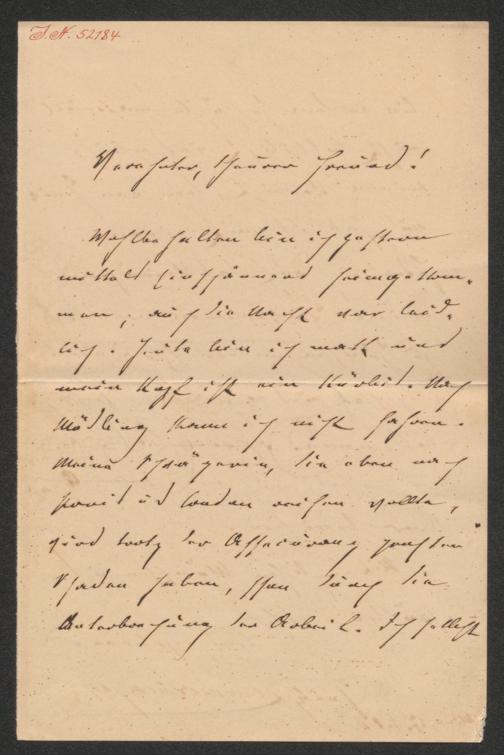 I.N. 52184
Verehrter, theurer Freund!
Wohlbehalten bin ich gestern
mittels Einspänners heimgekom-
men, auch die Nacht war leid-
lich. Heute bin ich matt und
mein Kopf ist ein Kürbis. Nach
Mödling kann ich nicht fahren.
Meine Schwägerin, die eben nach
Paris u London reisen wollte,
wird trotz der Assecuranz großen
Schaden haben, schon durch die
Unterbrechung der Arbeit. Ich selbst